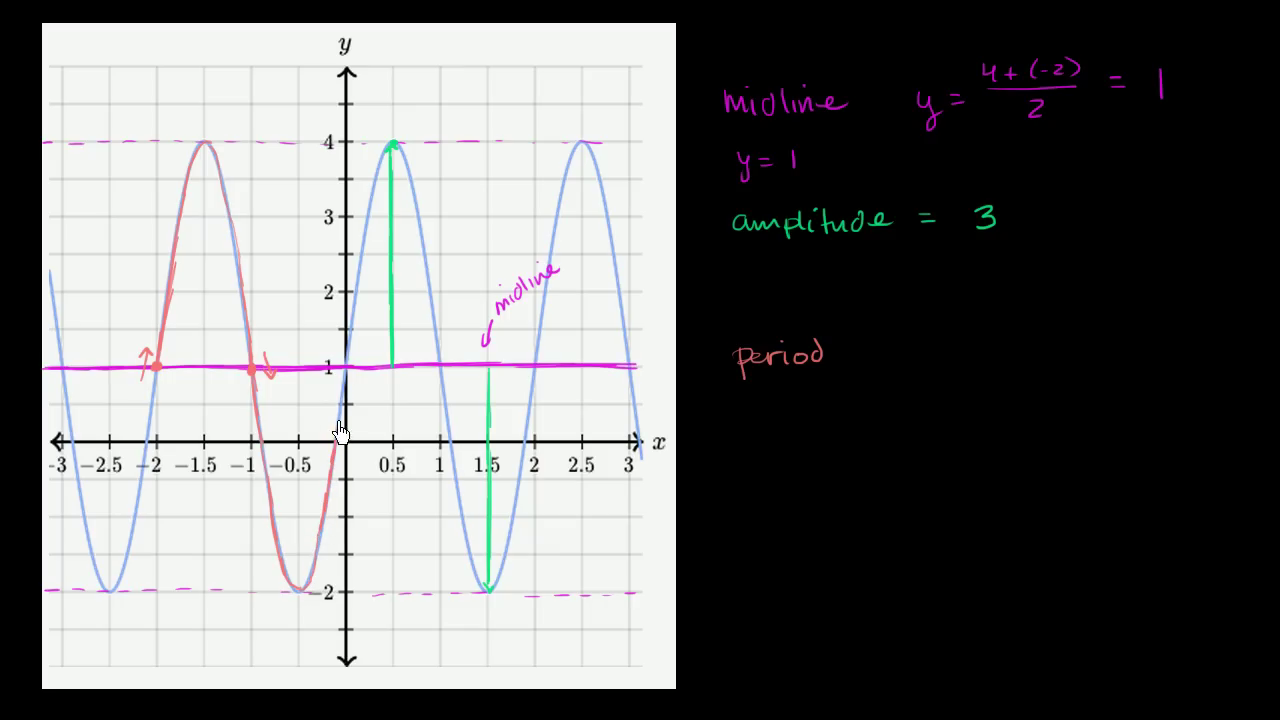 y
4
3
2
1
-3 -2.5 -2 -1.5 -1 -0.5 0.5 1 1.5 2 2.5 3 x
-2
midline
midline y = 4 + (-2) / 2 = 1
y = 1
amplitude = 3
period